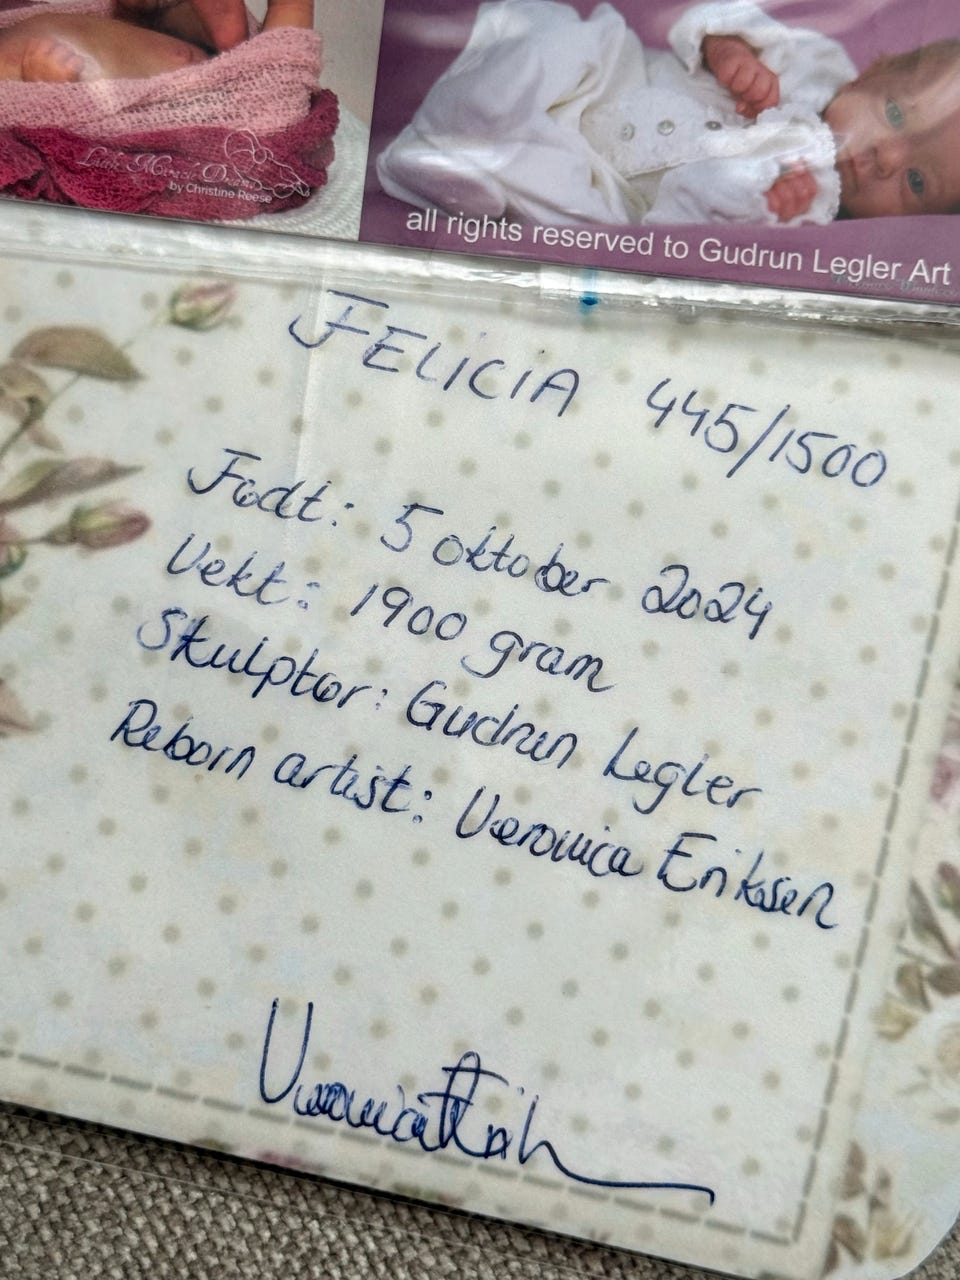 Little Miracle Dream
by Christine Reese
all rights reserved to Gudrun Legler Art
FELICIA 445/1500
Født: 5 oktober 2024
Vekt: 1900 gram
Skulptør: Gudrun Legler
Reborn artist: Veronica Eriksen